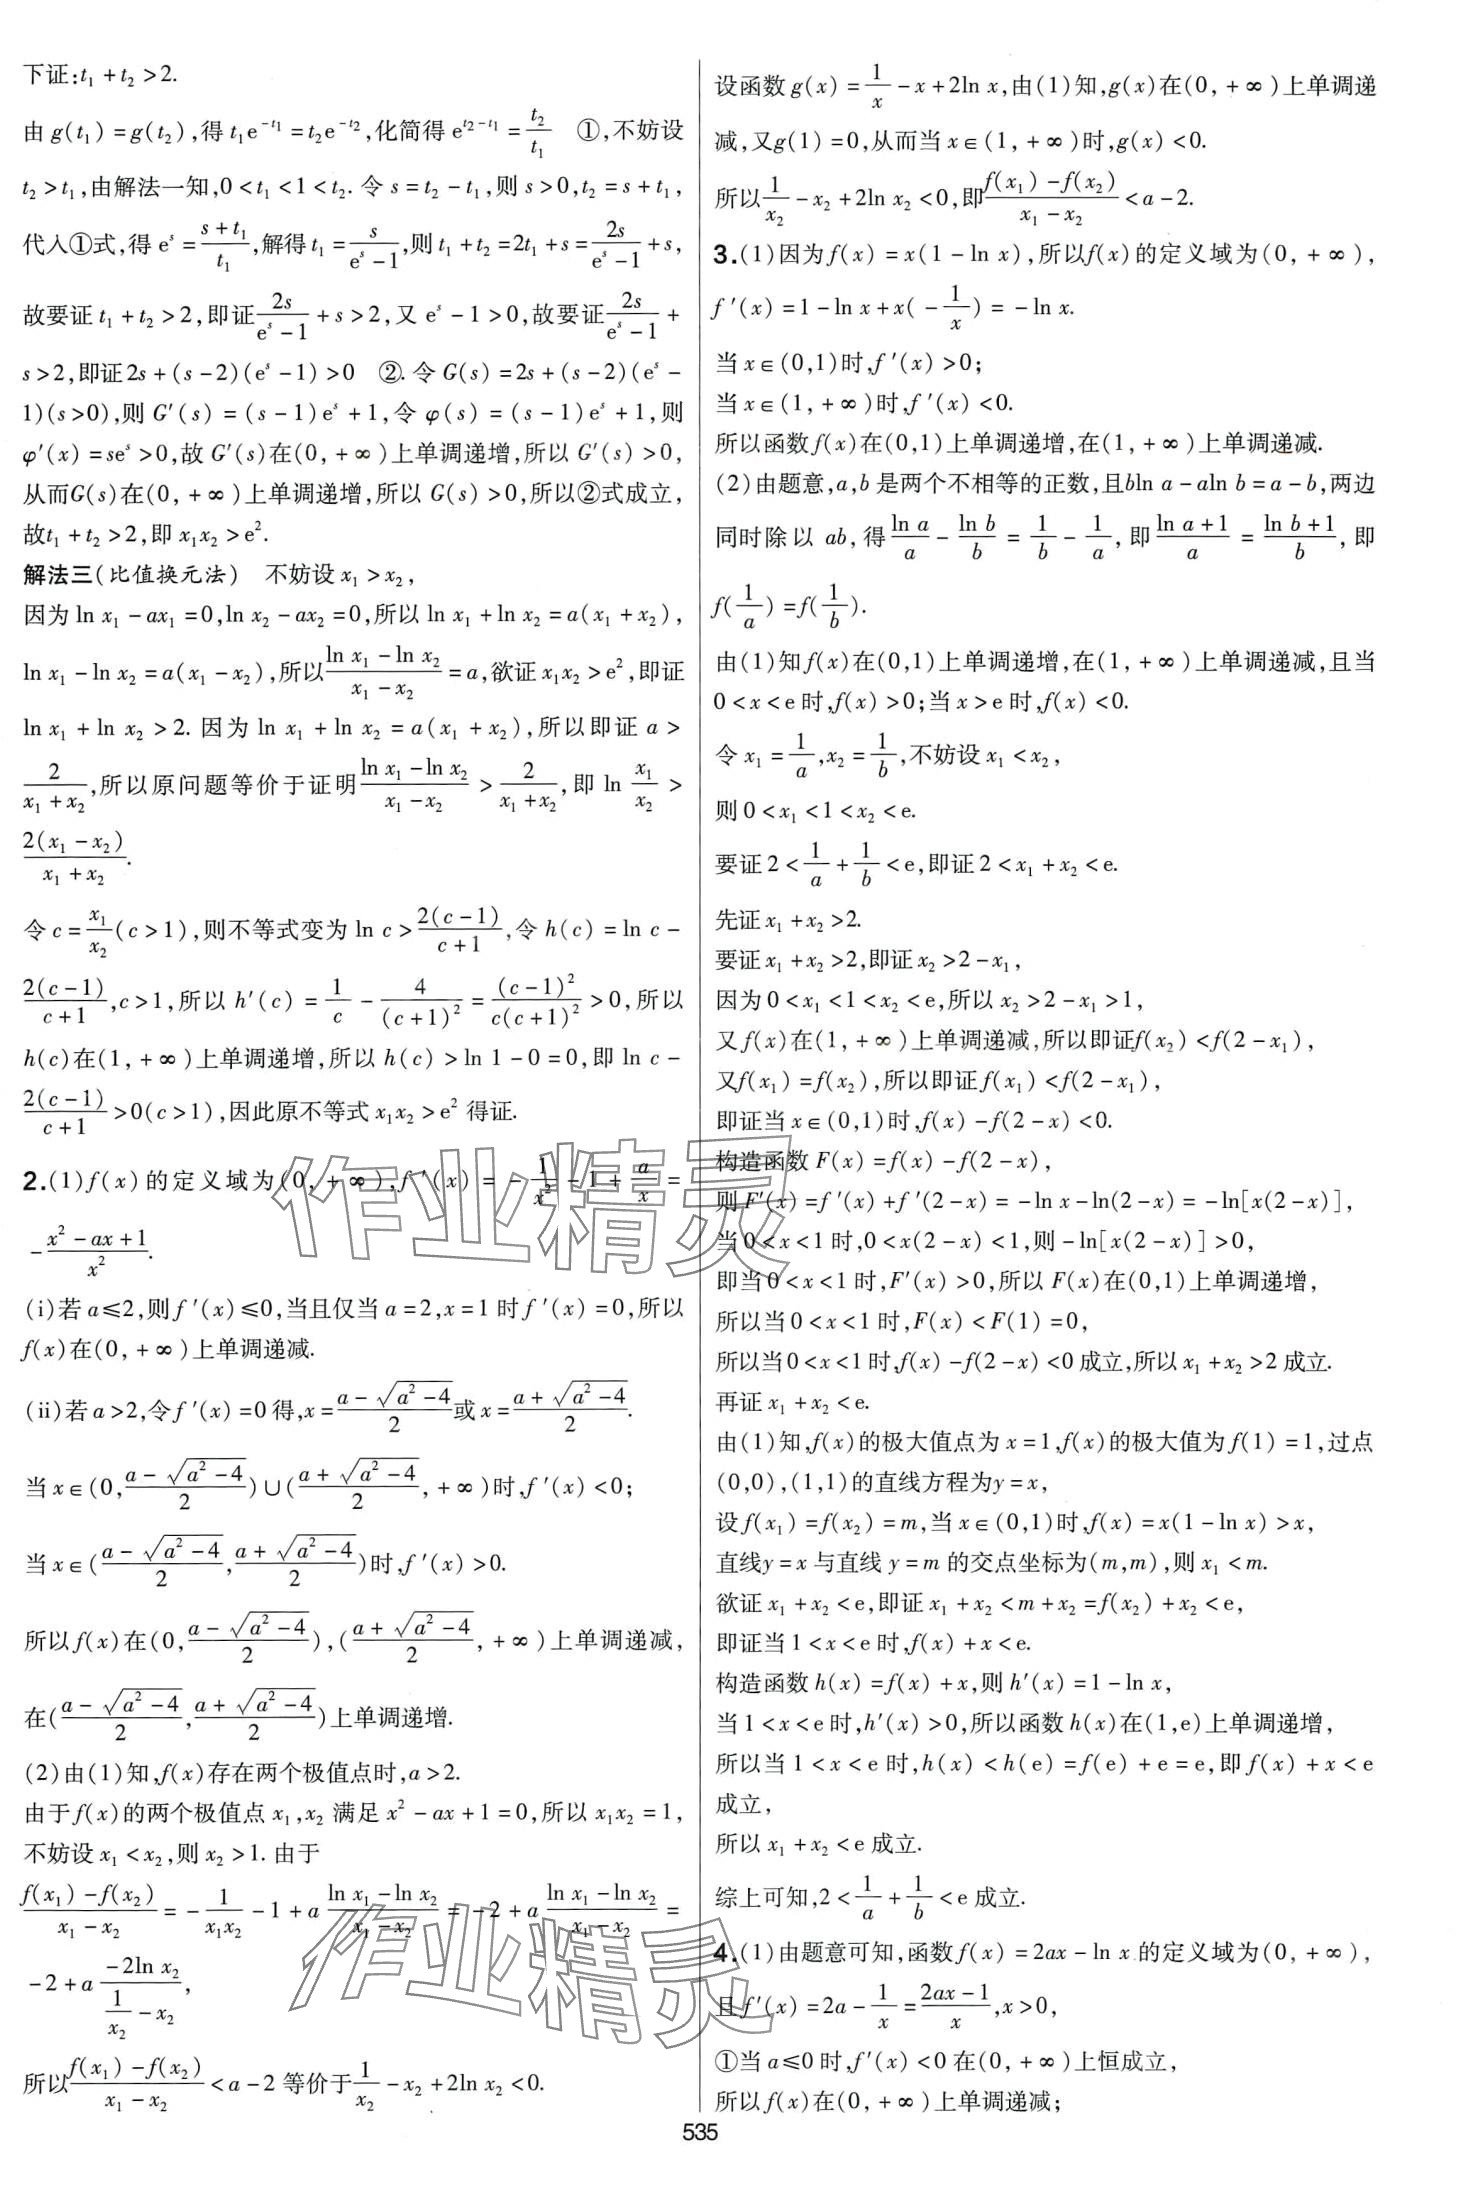 下证:t₁+t₂>2.
由g(t₁)=g(t₂),得t₁e^(-t₁)=t₂e^(-t₂),化简得e^(t₂-t₁)=t₂/t₁ ①,不妨设
t₂>t₁,由解法一知,0<t₁<1<t₂.令s=t₂-t₁,则s>0,t₂=s+t₁,
代入①式,得e^s=(s+t₁)/t₁,解得t₁=s/(e^s-1),则t₁+t₂=2t₁+s=2s/(e^s-1)+s,
故要证t₁+t₂>2,即证2s/(e^s-1)+s>2,又e^s-1>0,故要证2s/(e^s-1)+
s>2,即证2s+(s-2)(e^s-1)>0 ②.令G(s)=2s+(s-2)(e^s-
1)(s>0),则G′(s)=(s-1)e^s+1,令φ(s)=(s-1)e^s+1,则
φ′(x)=se^s>0,故G′(s)在(0,+∞)上单调递增,所以G′(s)>0,
从而G(s)在(0,+∞)上单调递增,所以G(s)>0,所以②式成立,
故t₁+t₂>2,即x₁x₂>e².
解法三(比值换元法) 不妨设x₁>x₂,
因为ln x₁-ax₁=0,ln x₂-ax₂=0,所以ln x₁+ln x₂=a(x₁+x₂),
ln x₁-ln x₂=a(x₁-x₂),所以(ln x₁-ln x₂)/(x₁-x₂)=a,欲证x₁x₂>e²,即证
ln x₁+ln x₂>2.因为ln x₁+ln x₂=a(x₁+x₂),所以即证a>
2/(x₁+x₂),所以原问题等价于证明(ln x₁-ln x₂)/(x₁-x₂)>2/(x₁+x₂),即ln x₁/x₂>
2(x₁-x₂)/(x₁+x₂).
令c=x₁/x₂(c>1),则不等式变为ln c>2(c-1)/(c+1),令h(c)=ln c-
2(c-1)/(c+1),c>1,所以h′(c)=1/c-4/(c+1)²=(c-1)²/(c(c+1)²)>0,所以
h(c)在(1,+∞)上单调递增,所以h(c)>ln 1-0=0,即ln c-
2(c-1)/(c+1)>0(c>1),因此原不等式x₁x₂>e²得证.
2.(1)f(x)的定义域为(0,+∞),f′(x)=-1/x²-1+a/x=
-(x²-ax+1)/x².
(i)若a≤2,则f′(x)≤0,当且仅当a=2,x=1时f′(x)=0,所以
f(x)在(0,+∞)上单调递减.
(ii)若a>2,令f′(x)=0得,x=(a-√(a²-4))/2或x=(a+√(a²-4))/2.
当x∈(0,(a-√(a²-4))/2)∪((a+√(a²-4))/2,+∞)时,f′(x)<0;
当x∈((a-√(a²-4))/2,(a+√(a²-4))/2)时,f′(x)>0.
所以f(x)在(0,(a-√(a²-4))/2),((a+√(a²-4))/2,+∞)上单调递减,
在((a-√(a²-4))/2,(a+√(a²-4))/2)上单调递增.
(2)由(1)知,f(x)存在两个极值点时,a>2.
由于f(x)的两个极值点x₁,x₂满足x²-ax+1=0,所以x₁x₂=1,
不妨设x₁<x₂,则x₂>1.由于
(f(x₁)-f(x₂))/(x₁-x₂)=-1/(x₁x₂)-1+a(ln x₁-ln x₂)/(x₁-x₂)=-2+a(ln x₁-ln x₂)/(x₁-x₂)=
-2+a(-2ln x₂)/(1/x₂-x₂),
所以(f(x₁)-f(x₂))/(x₁-x₂)<a-2等价于1/x₂-x₂+2ln x₂<0.
设函数g(x)=1/x-x+2ln x,由(1)知,g(x)在(0,+∞)上单调递
减,又g(1)=0,从而当x∈(1,+∞)时,g(x)<0.
所以1/x₂-x₂+2ln x₂<0,即(f(x₁)-f(x₂))/(x₁-x₂)<a-2.
3.(1)因为f(x)=x(1-ln x),所以f(x)的定义域为(0,+∞),
f′(x)=1-ln x+x(-1/x)=-ln x.
当x∈(0,1)时,f′(x)>0;
当x∈(1,+∞)时,f′(x)<0.
所以函数f(x)在(0,1)上单调递增,在(1,+∞)上单调递减.
(2)由题意,a,b是两个不相等的正数,且bln a-aln b=a-b,两边
同时除以ab,得ln a/a-ln b/b=1/b-1/a,即(ln a+1)/a=(ln b+1)/b,即
f(1/a)=f(1/b).
由(1)知f(x)在(0,1)上单调递增,在(1,+∞)上单调递减,且当
0<x<e时,f(x)>0;当x>e时,f(x)<0.
令x₁=1/a,x₂=1/b,不妨设x₁<x₂,
则0<x₁<1<x₂<e.
要证2<1/a+1/b<e,即证2<x₁+x₂<e.
先证x₁+x₂>2.
要证x₁+x₂>2,即证x₂>2-x₁,
因为0<x₁<1<x₂<e,所以x₂>2-x₁>1,
又f(x)在(1,+∞)上单调递减,所以即证f(x₂)<f(2-x₁),
又f(x₁)=f(x₂),所以即证f(x₁)<f(2-x₁),
即证当x∈(0,1)时,f(x)-f(2-x)<0.
构造函数F(x)=f(x)-f(2-x),
则F′(x)=f′(x)+f′(2-x)=-ln x-ln(2-x)=-ln[x(2-x)],
当0<x<1时,0<x(2-x)<1,则-ln[x(2-x)]>0,
即当0<x<1时,F′(x)>0,所以F(x)在(0,1)上单调递增,
所以当0<x<1时,F(x)<F(1)=0,
所以当0<x<1时,f(x)-f(2-x)<0成立,所以x₁+x₂>2成立.
再证x₁+x₂<e.
由(1)知,f(x)的极大值点为x=1,f(x)的极大值为f(1)=1,过点
(0,0),(1,1)的直线方程为y=x,
设f(x₁)=f(x₂)=m,当x∈(0,1)时,f(x)=x(1-ln x)>x,
直线y=x与直线y=m的交点坐标为(m,m),则x₁<m.
欲证x₁+x₂<e,即证x₁+x₂<m+x₂=f(x₂)+x₂<e,
即证当1<x<e时,f(x)+x<e.
构造函数h(x)=f(x)+x,则h′(x)=1-ln x,
当1<x<e时,h′(x)>0,所以函数h(x)在(1,e)上单调递增,
所以当1<x<e时,h(x)<h(e)=f(e)+e=e,即f(x)+x<e
成立,
所以x₁+x₂<e成立.
综上可知,2<1/a+1/b<e成立.
4.(1)由题意可知,函数f(x)=2ax-ln x的定义域为(0,+∞),
且f′(x)=2a-1/x=(2ax-1)/x,x>0,
①当a≤0时,f′(x)<0在(0,+∞)上恒成立,
所以f(x)在(0,+∞)上单调递减;
535
作业精灵
作业精灵